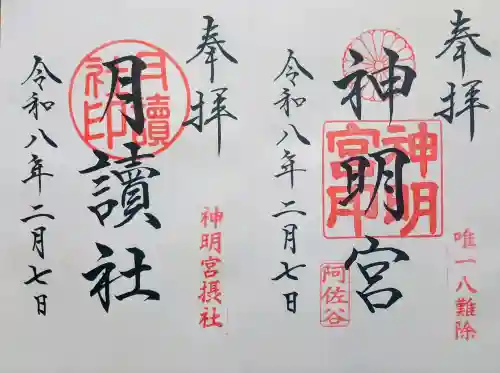 奉拝
神明宮
神明宮印
阿佐谷
唯一八難除
令和八年二月七日
奉拝
月讀社
月讀社印
神明宮摂社
令和八年二月七日